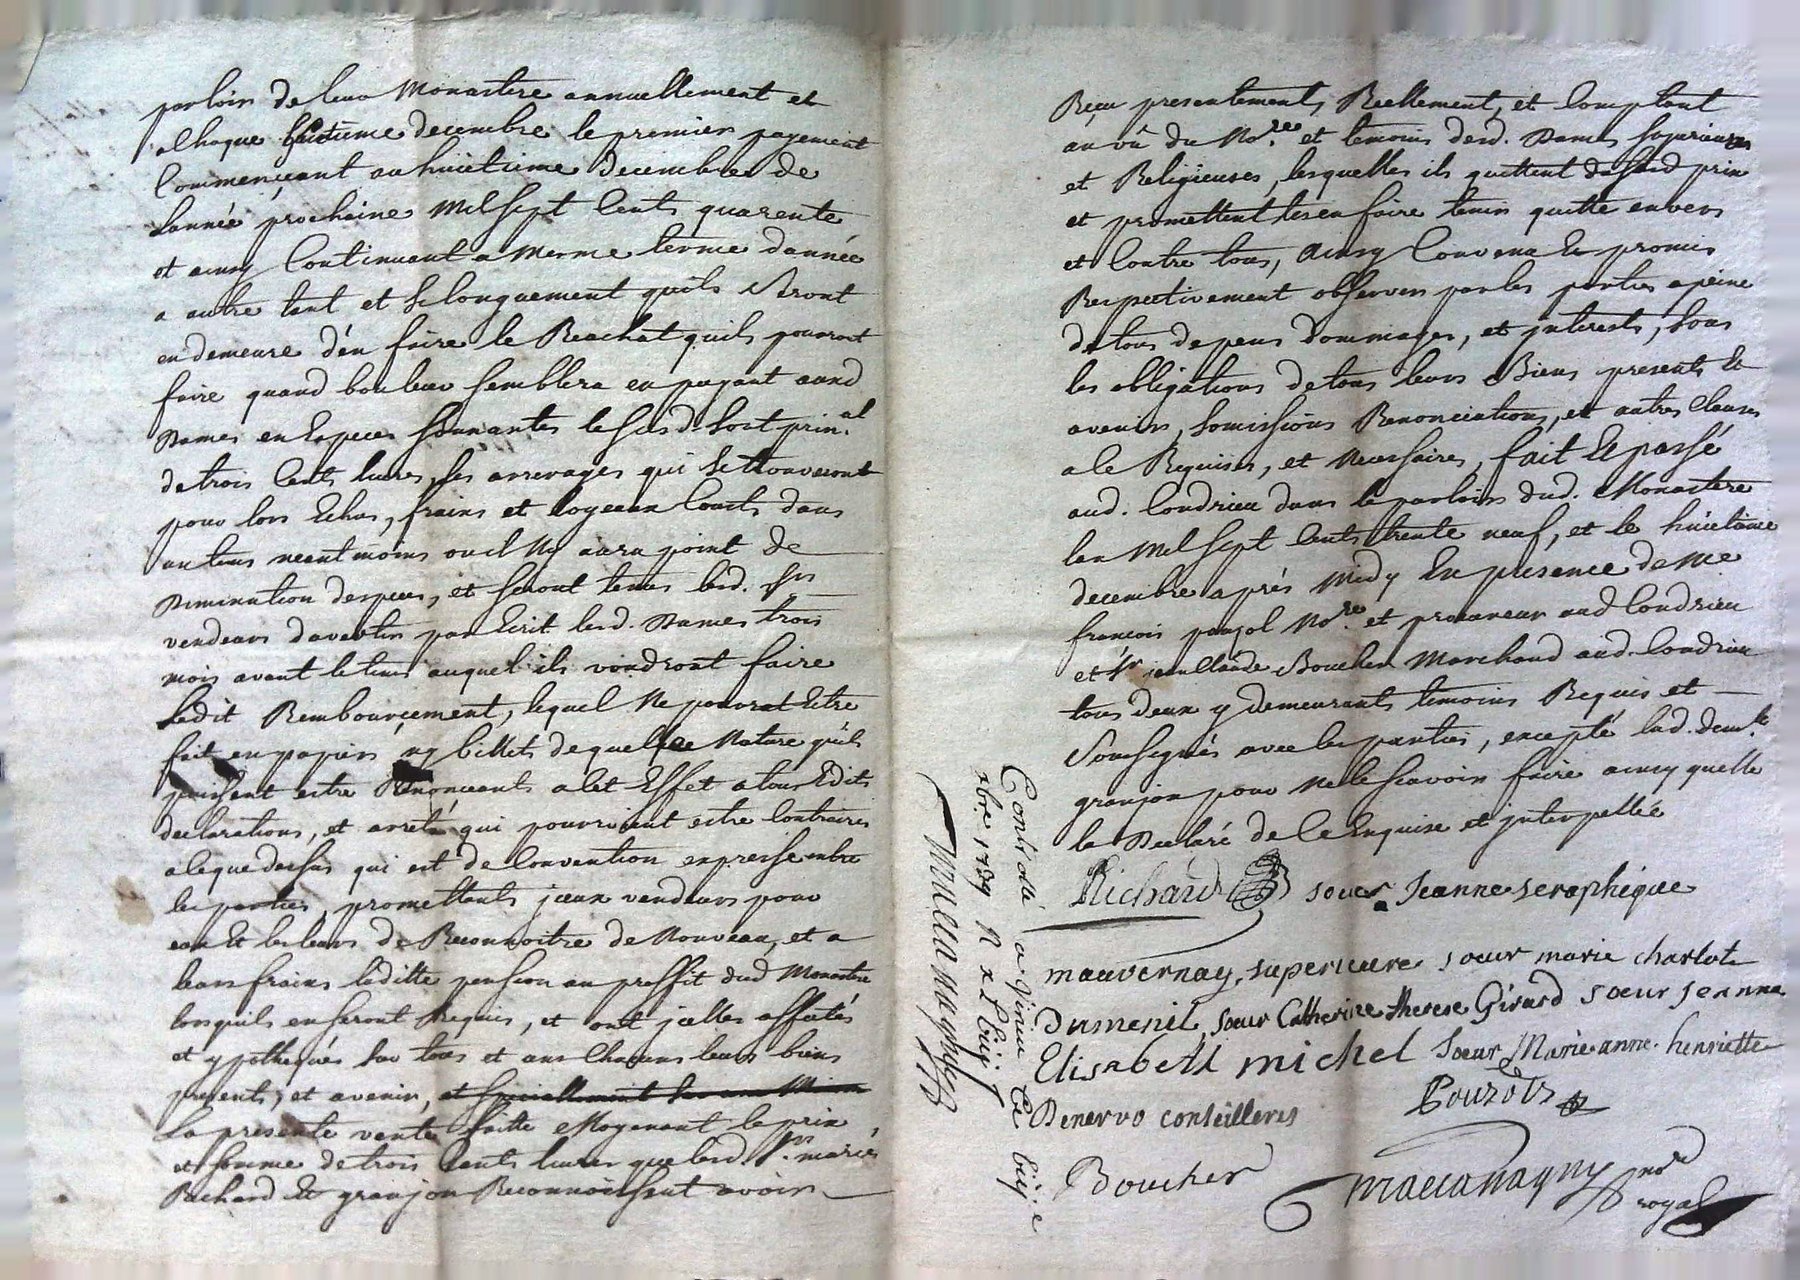 parloir de leur Monastere annuellement et
achaque huitieme decembre le premier payement
Commençeant au huictieme Decembre de
Lannée prochaine Mil Sept Cents quarente
et ainsy Continuant a Mesme terme dannée
a autre tant et Silonguement quils Seront
en demeure d'en faire le Reachat quils pourront
faire quand bon leur Semblera en payant ausd
Dames en Especes Sonnantes le Susd. Sort prin.al
de trois Cents livres, les arrerages qui Se trouveront
pour lors Echus, fraix et loyeaux Couts dans
un tems neantmoins ou il Ny aura point de
Diminution despeces, et Seront tenus lesd. Srs
vendeurs davertir par Ecrit lesd. Dames trois
mois avant le tems auquel ils voudront faire
Ledit Rembourcement, lequel Ne pourrat Estre
fait en papiers ny billets de quelque Nature quils
puissent estre Renonceants a Cet Effet a tous Edits
declarations, et arrets qui pourroient estre Contraires
a Ceque dessus qui est de Convention expresse entre
les parties, promettants jceux vendeurs pour
eux Et les leurs de Reconnoitre de Nouveau, et a
leurs fraix laditte pension au proffit dud Monastere
lorsquils en Seront Requis, et ont jcelles affectés
et ypothequés Sur tous et uns Chacuns leurs biens
presents, et avenir, et Speciallement Sur une
La presente vente faitte Moyenant le prix
et Somme de trois Cents livres que lesd. Srs mariés
Richard Et granjon Reconnoissent avoir
Reçu presentement, Reellement, et Comptant
au vû du No.re et temoins desd. Dames Superieures
et Religieuses, lesquelles ils quittent dusd prix
et promettent les en faire tenir quitte envers
et Contre tous, Ainsy Convenu Et promis
Respectivement observer par les parties a peine
de tous depens dommages, et jnterests, Sous
les obligations de tous leurs Biens presents Et
avenir, Somissions Renonciations, et autres Clauses
a Ce Requises, et Necessaires, fait Et passé
aud. Condrieu dans le parloir dud. Monastere
lan Mil Sept Cents trente neuf, et le huictieme
decembre apres Midy En presence de Me
françois pouzol No.re et procureur aud Condrieu
et Sr jean Claude Boucher Marchand aud. Condrieu
tous deux y demeurants temoins Requis et
Soussignés avec les parties, excepté lad. dem.lle
granjon pour Ne le Scavoir faire ainsy quelle
la Declaré de Ce Enquise et jnterpellée
Richard soeur Jeanne seraphique
mauvernay, superieure soeur marie charlote
Dumenil, soeur Catherine therese Girard soeur Jeanne
Elisabeth michel Soeur Marie anne henriette
Denervo conseilleres Pouzols
Boucher Maccanagny no.re
royal
Controllé a Virieu Ce
xbre 1739 R x
Maccanagny